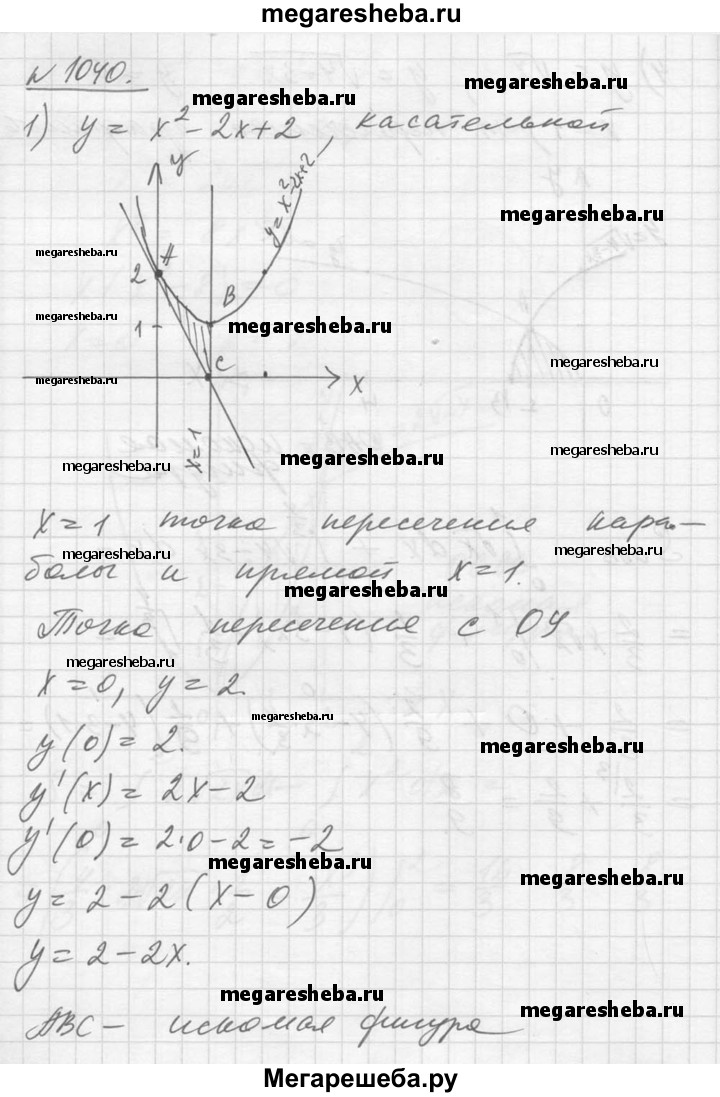 megaresheba.ru
№ 1040.
megaresheba.ru
megaresheba.ru
1) y = x² - 2x + 2, касательной
y
y = x² - 2x + 2
megaresheba.ru
megaresheba.ru
A
2
B
megaresheba.ru
1
megaresheba.ru
C
megaresheba.ru
megaresheba.ru
x
x = 1
megaresheba.ru
megaresheba.ru
megaresheba.ru
x = 1 точка пересечение пара-
megaresheba.ru
megaresheba.ru
болы и прямой x = 1.
megaresheba.ru
Точка пересечение с OY
megaresheba.ru
x = 0, y = 2.
megaresheba.ru
y(0) = 2.
megaresheba.ru
y'(x) = 2x - 2
y'(0) = 2·0 - 2 = -2
megaresheba.ru
megaresheba.ru
y = 2 - 2(x - 0)
y = 2 - 2x.
megaresheba.ru
megaresheba.ru
ABC - искомая фигура
Мегарешеба.ру